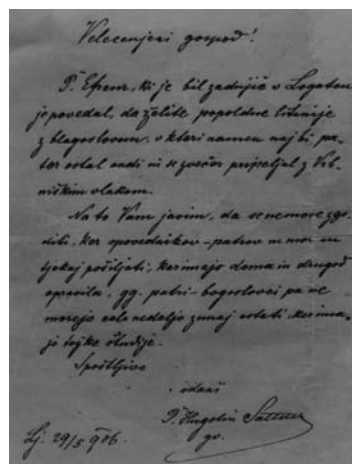 Velecenjeni gospod!
P. Efrem, ki je bil zadnjič v Logatcu
je povedal, da želite popoldne litanije
z blagoslovom, v kteri namen naj bi pa-
ter ostal ondi in se zvečer pripeljal z
vlakom.
Na to Vam javim, da se nemore zgo-
diti, ker spovednikov – patrov ni moč
tjekaj pošiljati, ker imajo doma in drugod
opravila, gg. patri – bogoslovci pa ne
morejo celo nedeljo zunaj ostati, ker ima-
jo težke študije.
Spoštljivo
udani
P. Hugolin Sattner
gv.
Lj. 29/5 906.